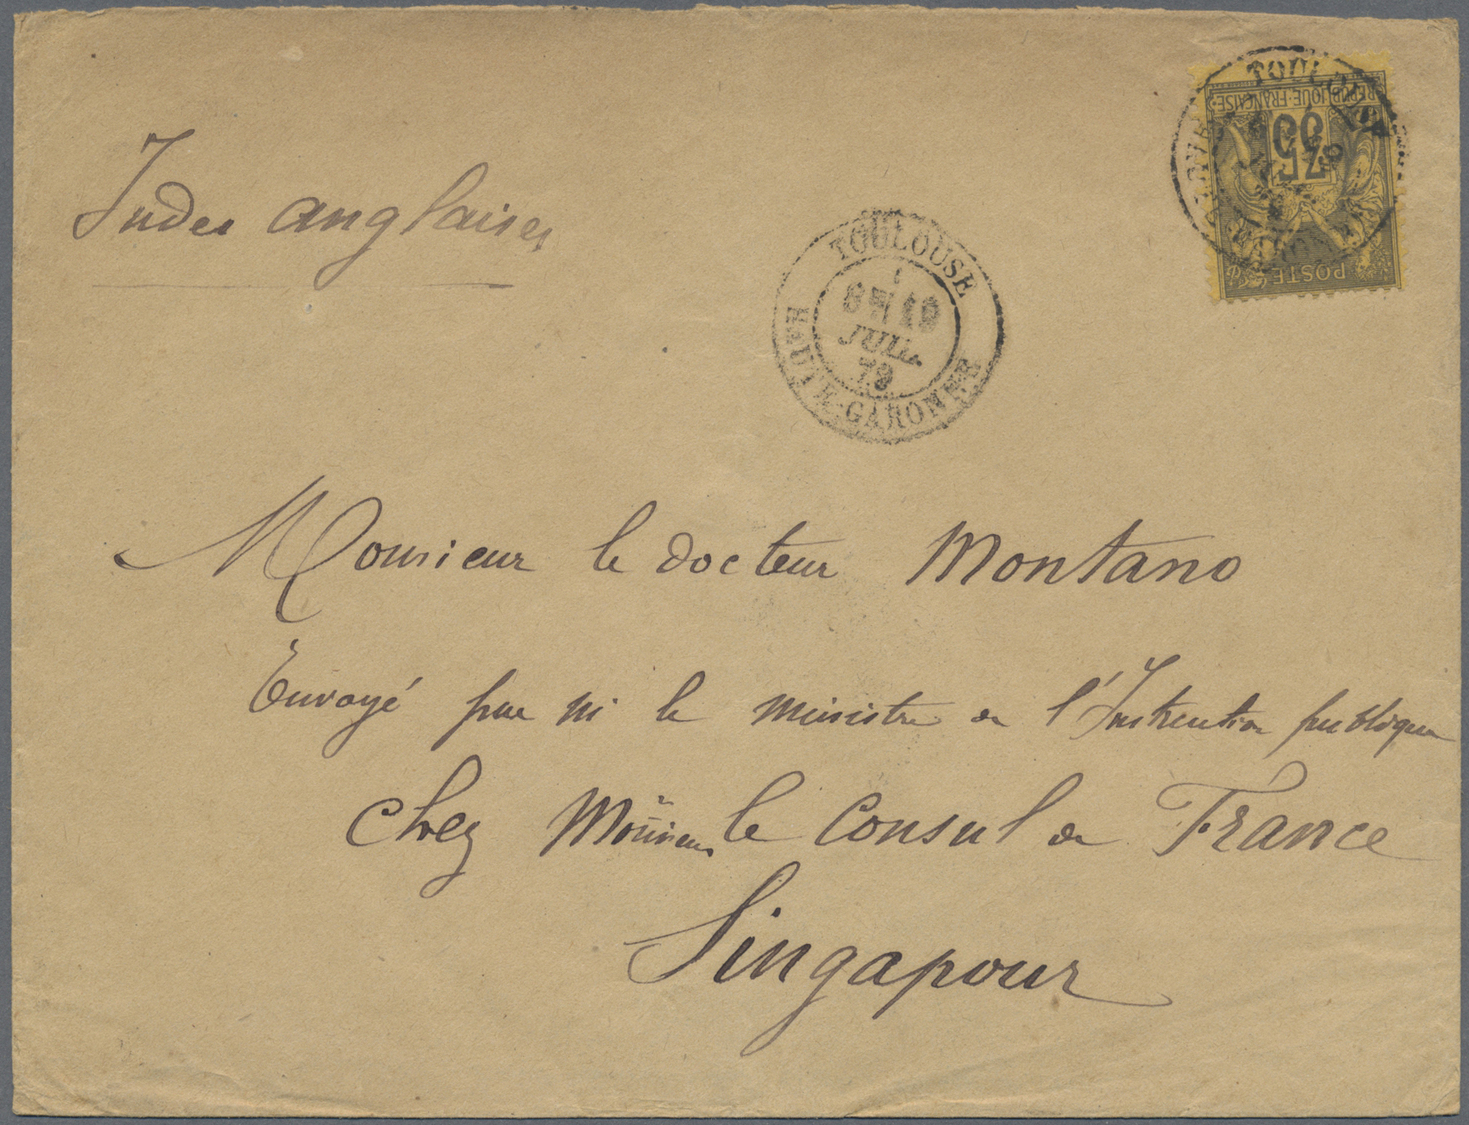 Indes anglaises
TOULOUSE
8E 19
JUIL.
79
HTE-GARONNE
TOULOUSE
REPUBLIQUE·FRANÇAISE
POSTE
Monsieur le docteur Montano
Envoyé par m le ministre de l'Instruction publique
chez Monsieur le Consul de France
Singapour